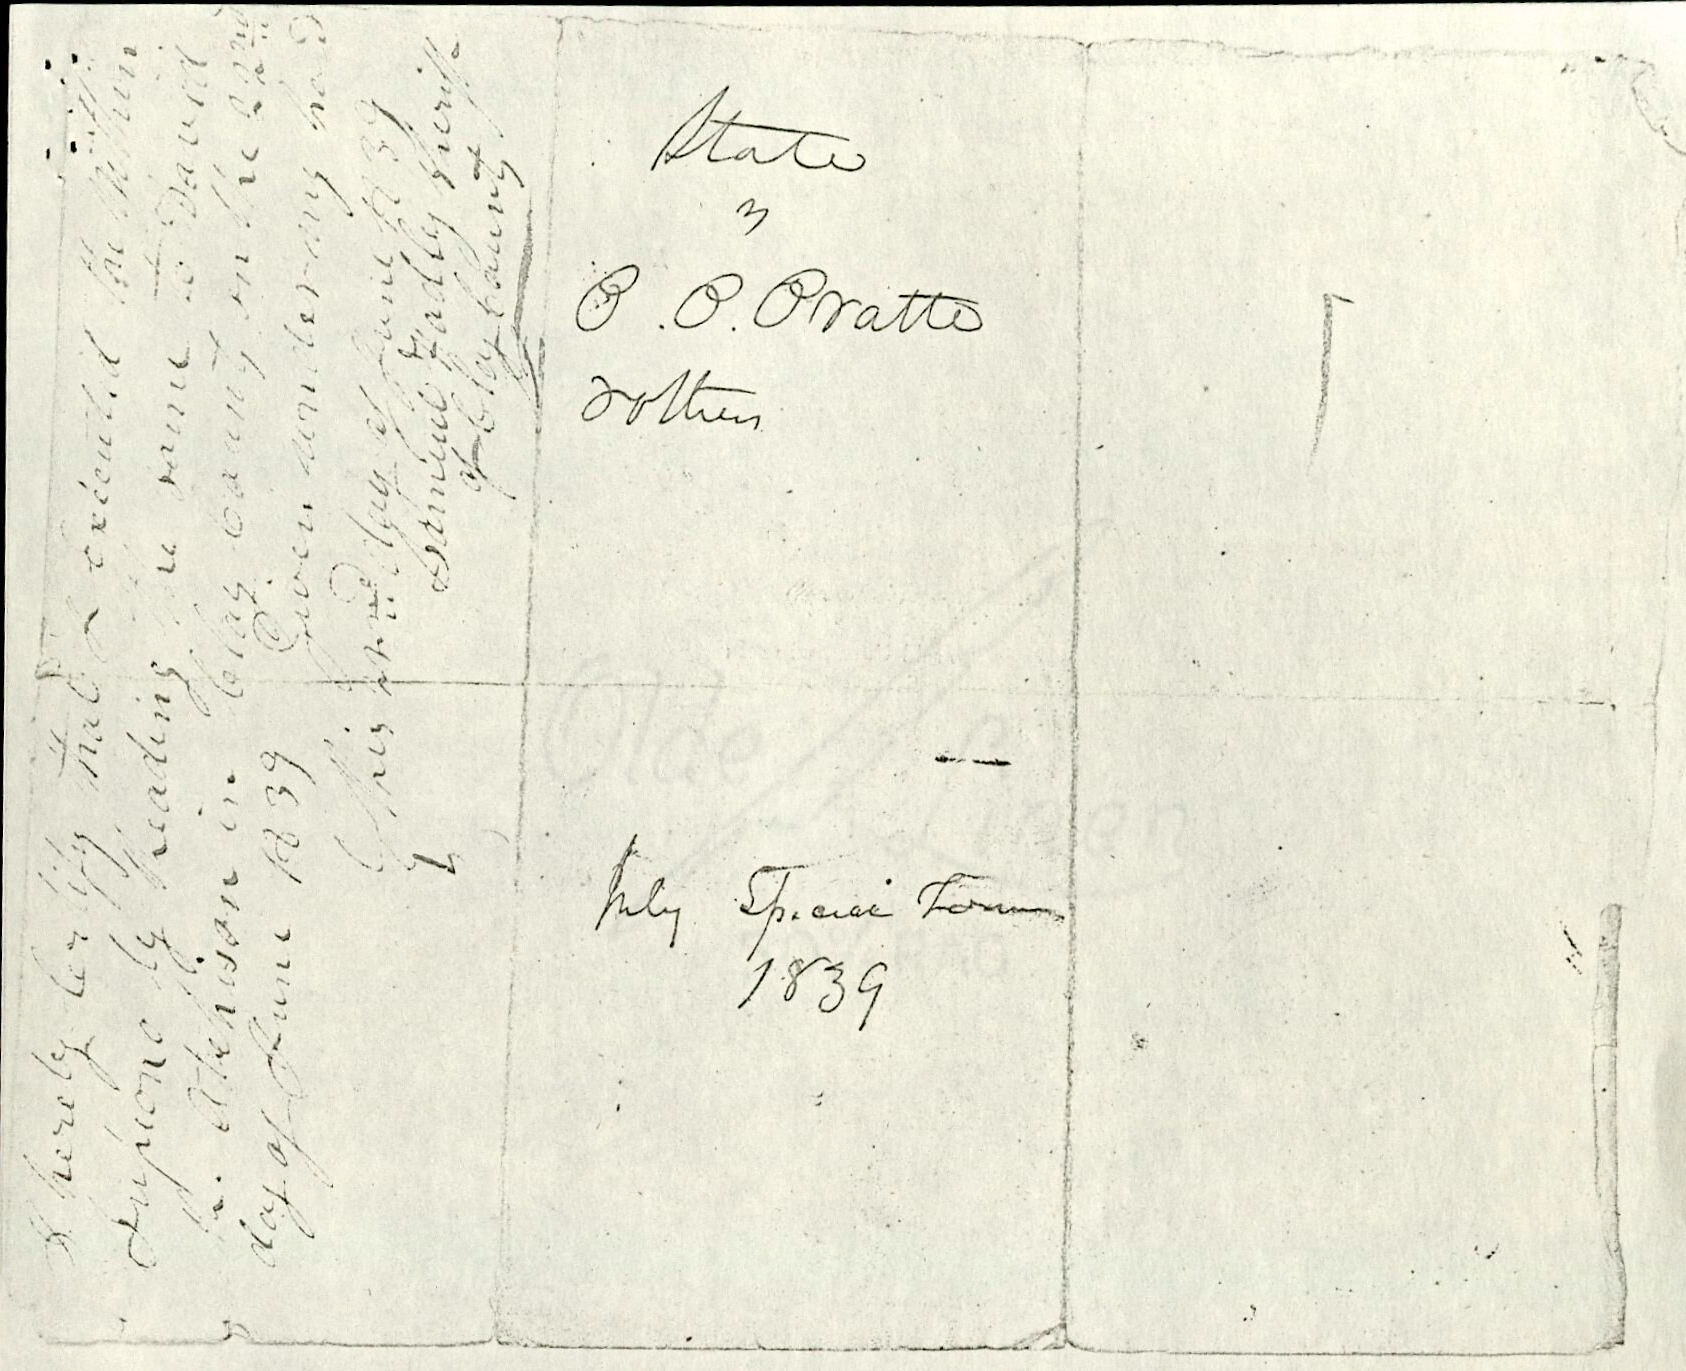 I hereby certify that I executed the within
Supeona by Reading the same to David
R. Atchison in Clay County on the 2nd
day of June 1839 Given under my hand
This 2nd day of June 1839
Samuel Hadley Sheriff
of Clay County
State
v
P. P. Pratt
& others
July Special Term
1839